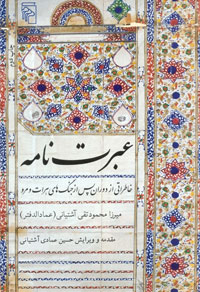 عبرت نامه
خاطراتی از دوران پس از جنگ‌های هرات و مرو
میرزا محمود تقی آشتیانی (عمادالدفتر)
مقدمه و ویرایش حسین صمادی آشتیانی